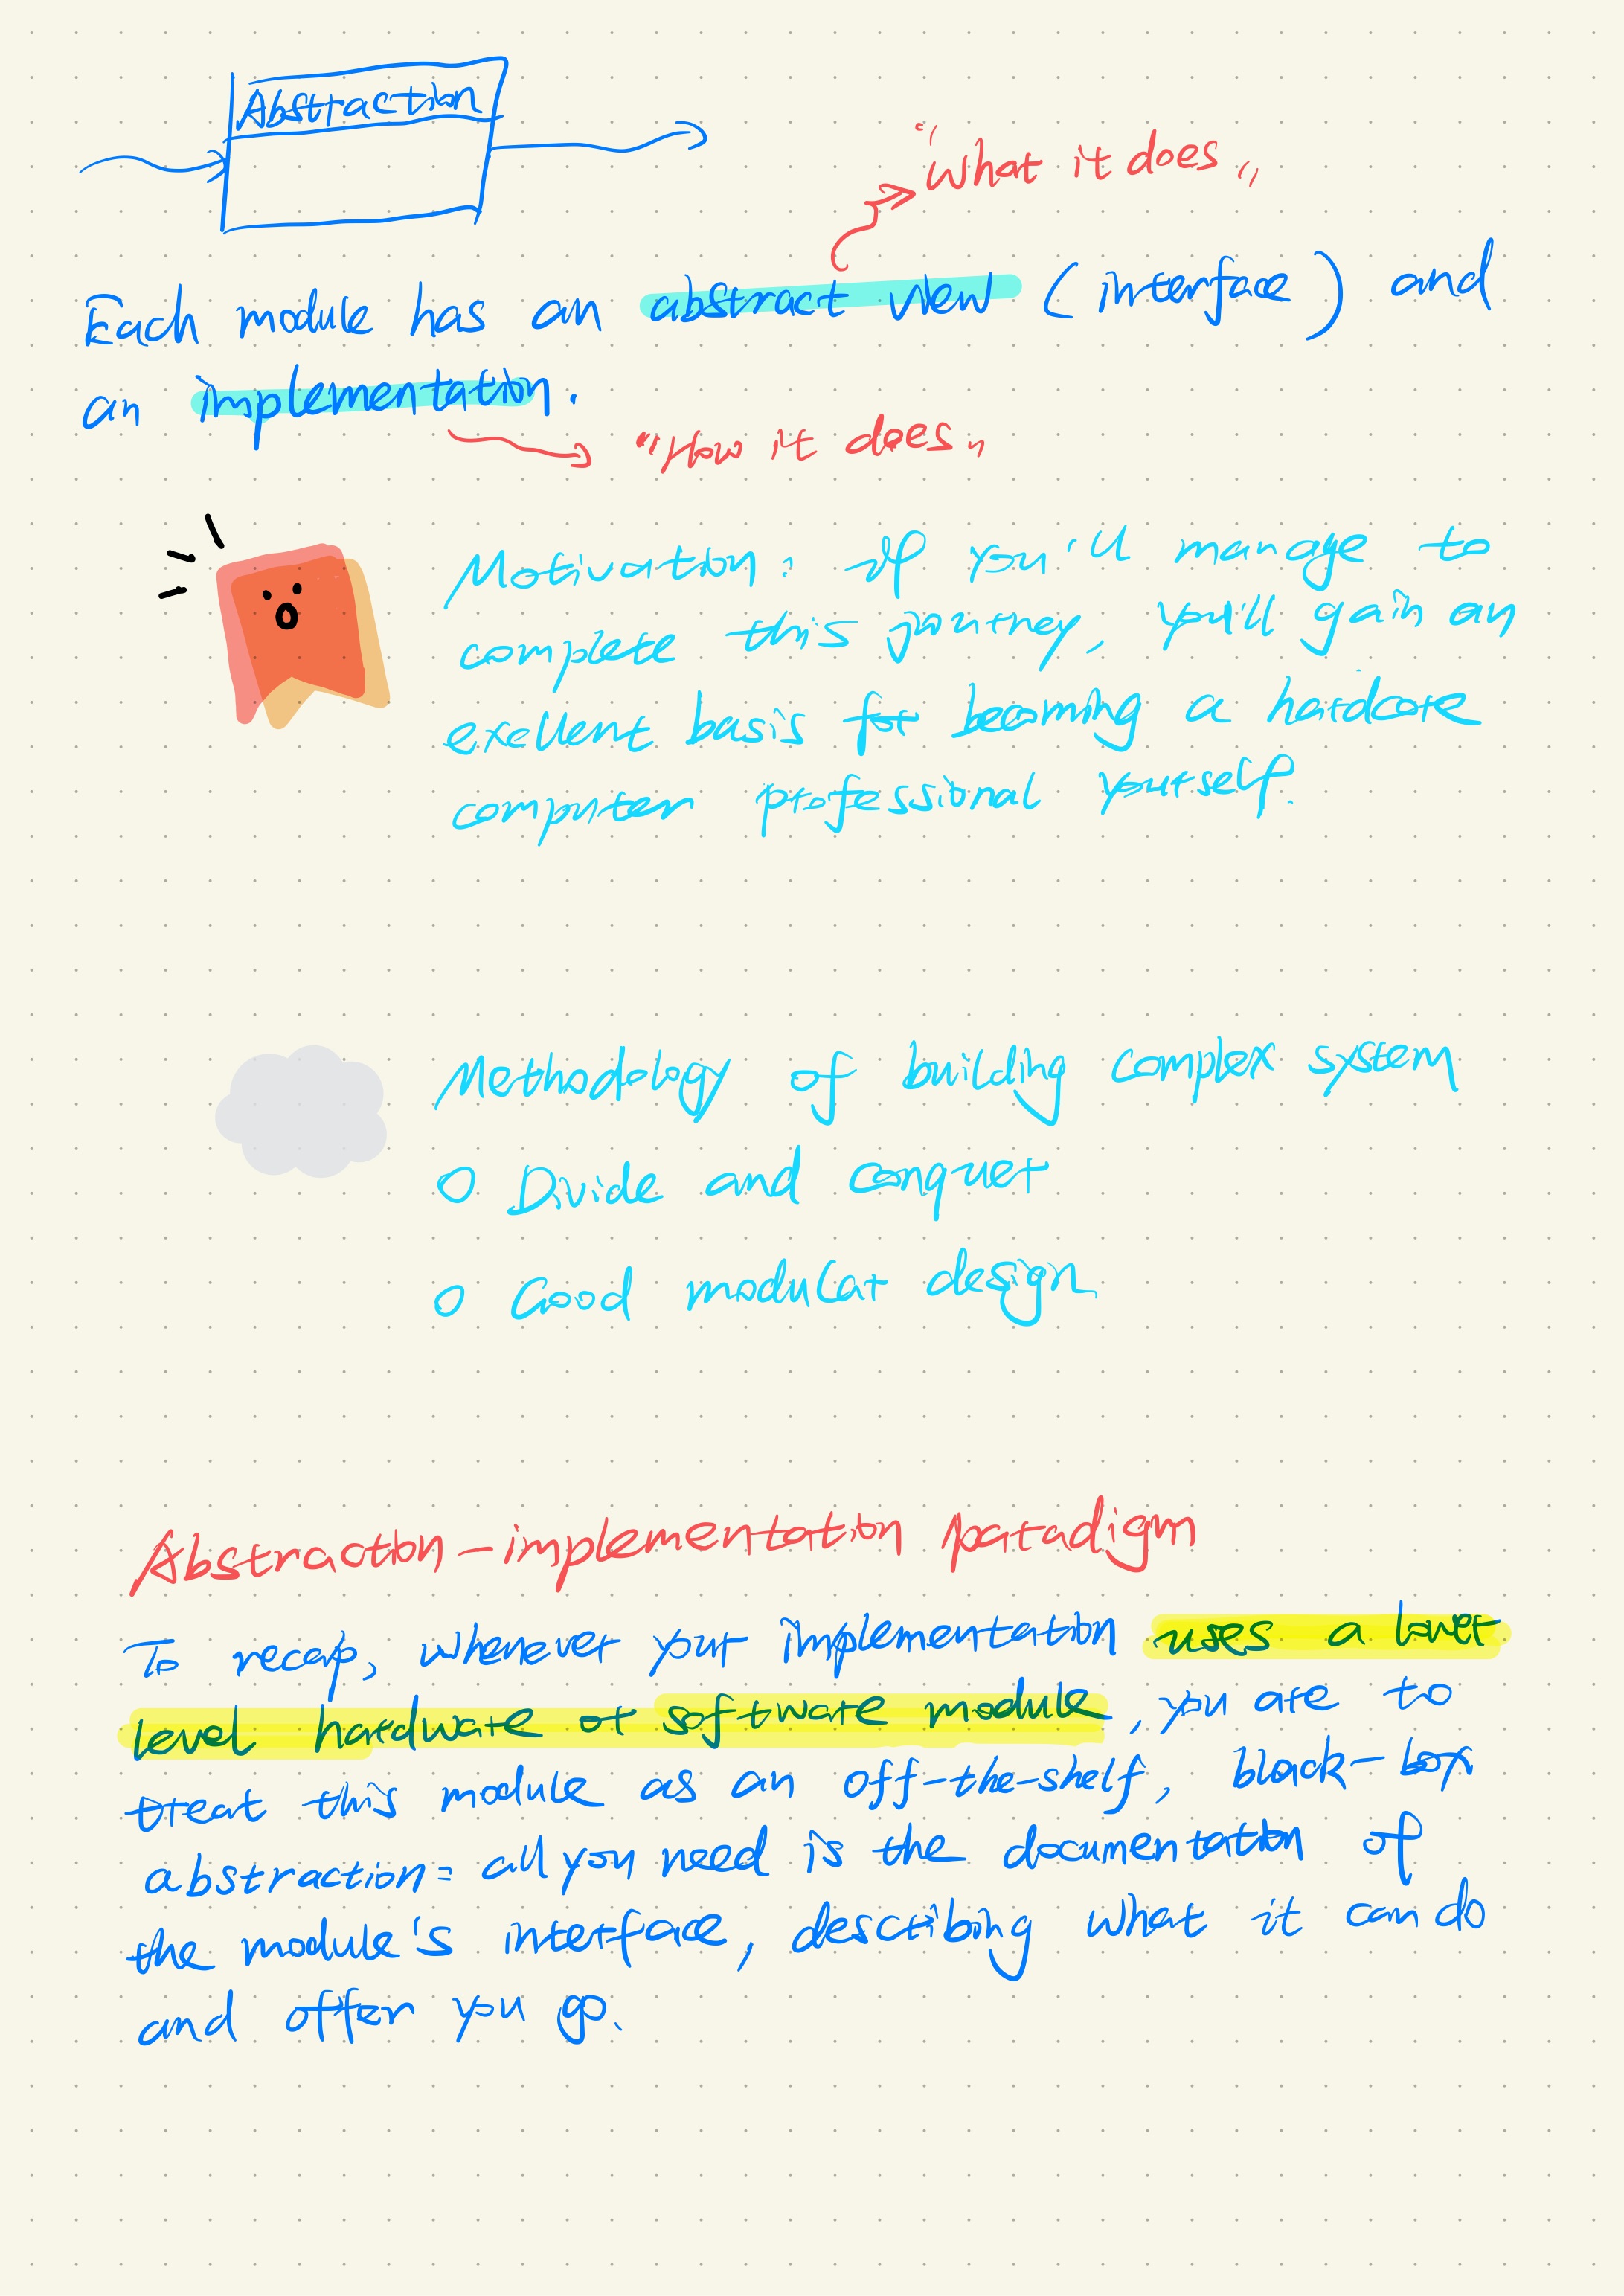 Abstraction
"What it does"
Each module has an abstract view (interface) and
an implementation.
"How it does"
Motivation: If you'll manage to
complete this journey, you'll gain an
exellent basis for becoming a hardcore
computer professional yourself.
Methodology of building complex system
O Divide and conquer
O Good modular design
Abstraction-implementation paradigm
To recap, whenever your implementation uses a lower
level hardware or software module, you are to
treat this module as an off-the-shelf, black-box
abstraction: all you need is the documentation of
the module's interface, describing what it can do
and offer you go.